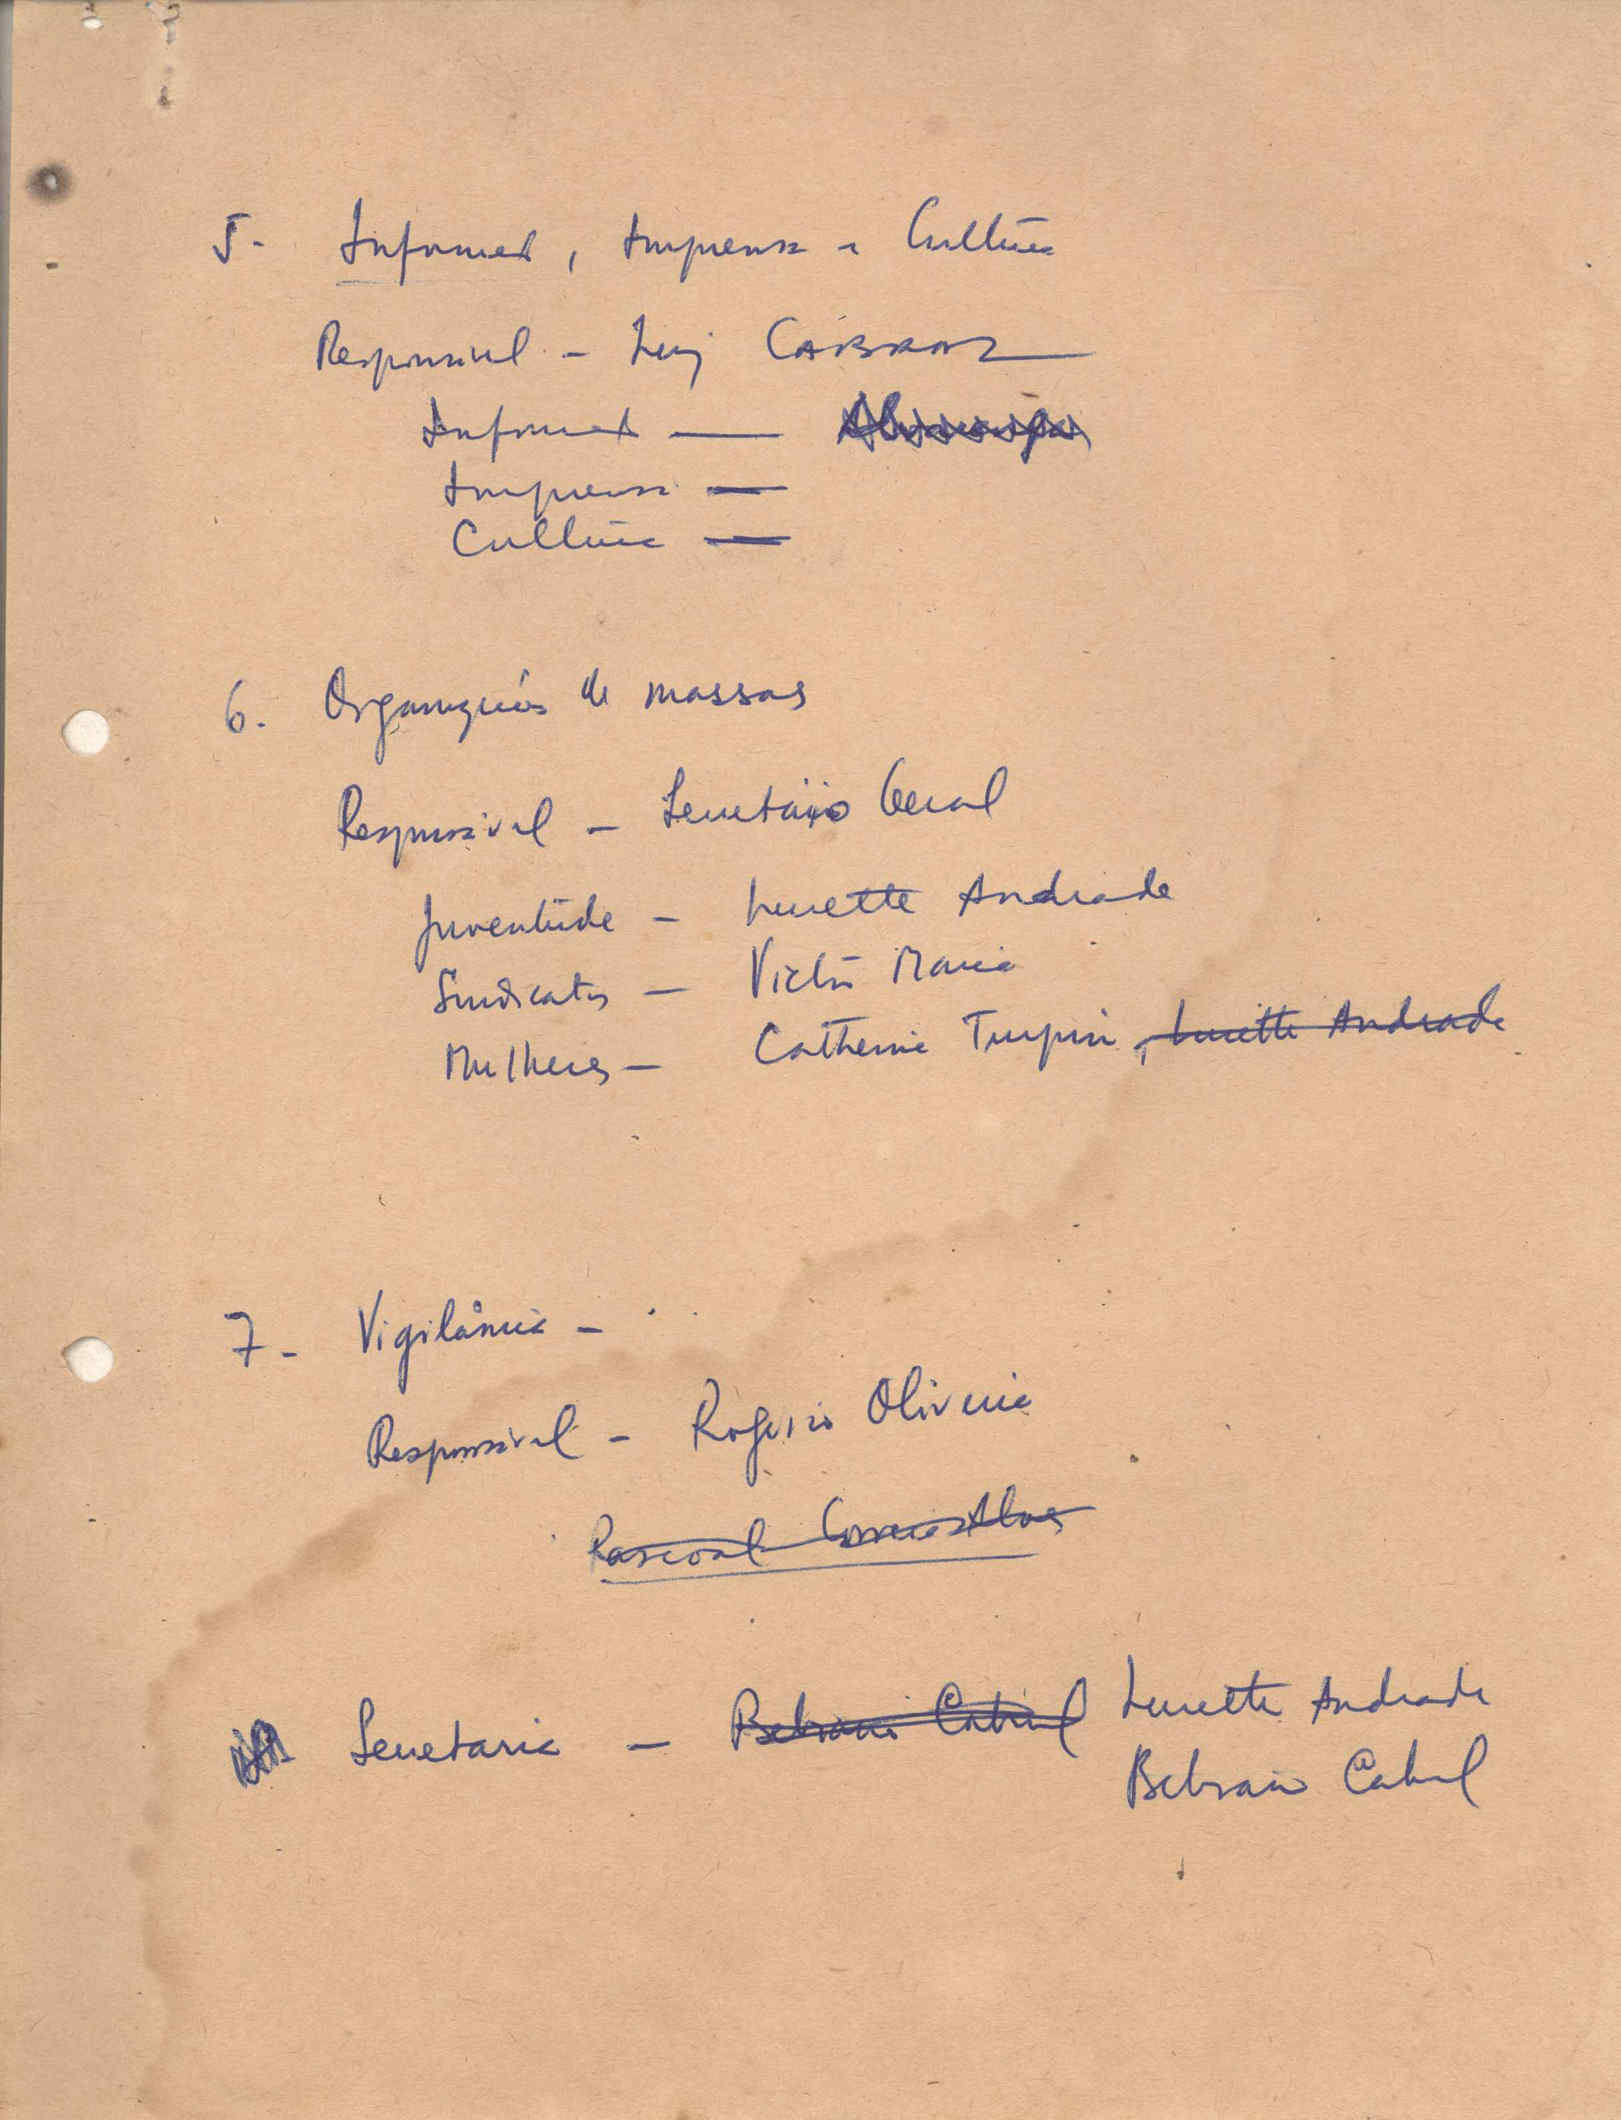 5- Informações, Imprensa e Cultura
Responsável - Luiz CABRAL
Informações —
Imprensa —
Cultura —
6. Organizações de massas
Responsável - Secretário Geral
Juventude - Lucette Andrade
Sindicatos - Victor Maria
Mulheres - Catherine Turpin, Lucette Andrade
7- Vigilância -
Responsável - Rogério Oliveira
Pascoal Correia Alves
Secretaria - Belmira Cabral Lucette Andrade
Cabral